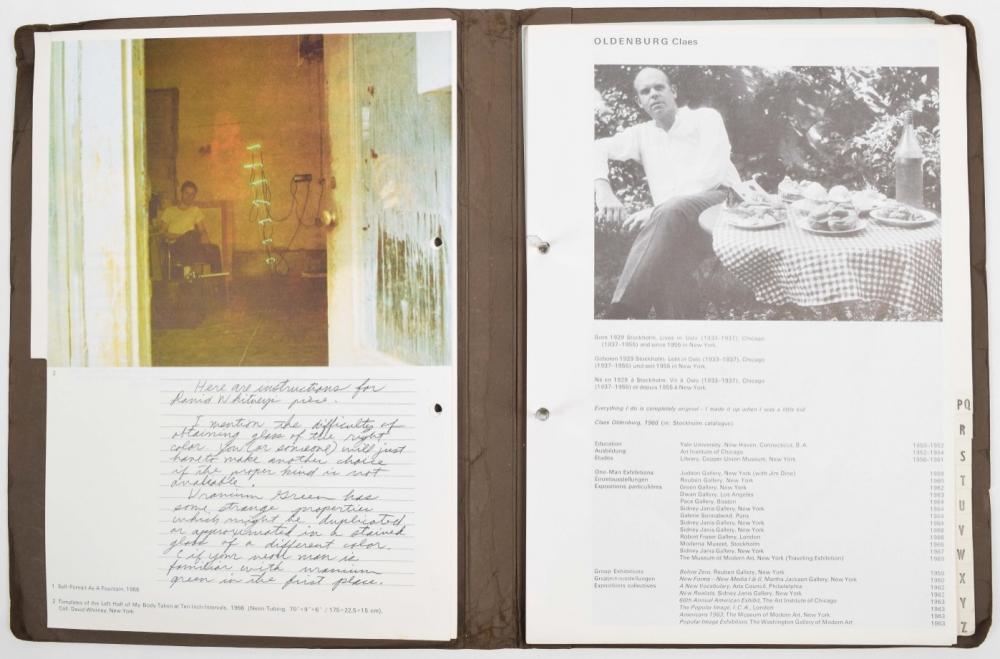 2
Here are instructions for
David Whitney's piece.
I mention the difficulty of
obtaining glass of the right
color. You (or someone) will just
have to make another choice
if the proper kind is not
available.
Uranium Green has
some strange properties
which might be duplicated
or approximated in a stained
glass of a different color.
(if your neon man is
familiar with uranium
green in the first place.
1 Self-Portrait As A Fountain, 1966
2 Templates of the Left Half of My Body Taken at Ten Inch Intervals, 1966 (Neon Tubing, 70"×9"×6" / 175×22,5×15 cm).
Coll. David Whitney, New York
OLDENBURG Claes
Born 1929 Stockholm. Lives in Oslo (1933-1937), Chicago
(1937-1955) and since 1956 in New York.
Geboren 1929 Stockholm. Lebt in Oslo (1933-1937), Chicago
(1937-1955) und seit 1956 in New York.
Né en 1929 à Stockholm. Vit à Oslo (1933-1937), Chicago
(1937-1956) et depuis 1956 à New York.
Everything I do is completely original - I made it up when I was a little kid
Claes Oldenburg, 1960 (in: Stockholm catalogue)
Education Yale University, New Haven, Connecticut, B.A.
Ausbildung Art Institute of Chicago 1952-1954
Etudes Library, Cooper Union Museum, New York 1956-1961
One-Man Exhibitions Judson Gallery, New York (with Jim Dine) 1959
Einzelausstellungen Reuben Gallery, New York 1960
Expositions particulières Green Gallery, New York 1962
Dwan Gallery, Los Angeles 1963
Pace Gallery, Boston 1964
Sidney Janis Gallery, New York 1964
Galerie Sonnabend, Paris 1964
Sidney Janis Gallery, New York
Sidney Janis Gallery, New York 1966
Robert Fraser Gallery, London 1966
Moderna Museet, Stockholm 1966
Sidney Janis Gallery, New York 1967
The Museum of Modern Art, New York (Traveling Exhibition) 1969
Group Exhibitions Below Zero, Reuben Gallery, New York 1959
Gruppenausstellungen New Forms - New Media I & II, Martha Jackson Gallery, New York 1960
Expositions collectives A New Vocabulary, Arts Council, Philadelphia 1962
New Realists, Sidney Janis Gallery, New York 1962
66th Annual American Exhibit, The Art Institute of Chicago 1963
The Popular Image, I.C.A., London 1963
Americans 1963, The Museum of Modern Art, New York 1963
Popular Image Exhibition, The Washington Gallery of Modern Art 1963
PQ
R
S
T
U
V
W
X
Y
Z